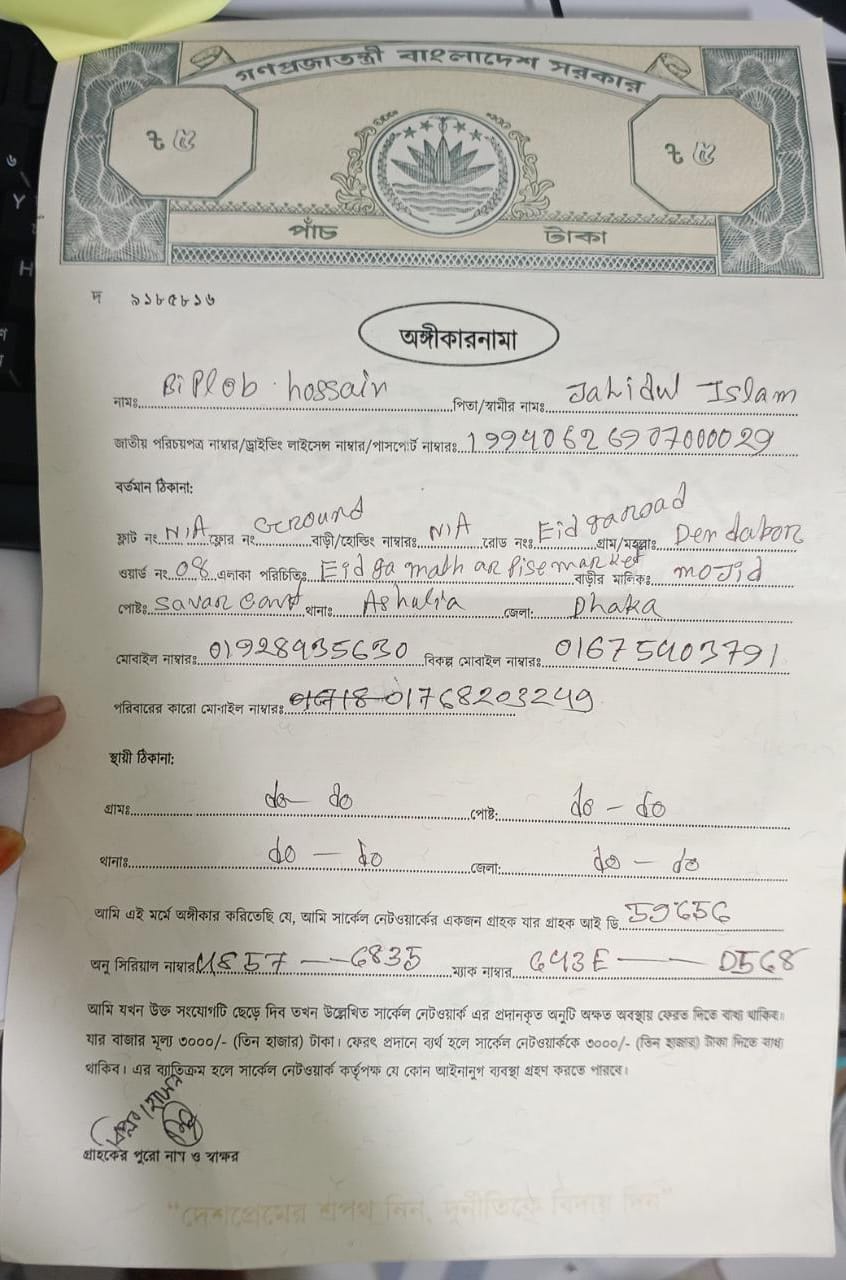 গণপ্রজাতন্ত্রী বাংলাদেশ সরকার
৳ ৫ ৳ ৫
পাঁচ টাকা
দ ৯১৮৫৮১৬
অঙ্গীকারনামা
নামঃ Biplob hossain পিতা/স্বামীর নামঃ Jahidul Islam
জাতীয় পরিচয়পত্র নাম্বার/ড্রাইভিং লাইসেন্স নাম্বার/পাসপোর্ট নাম্বারঃ 19940626907000029
বর্তমান ঠিকানা:
ফ্লাট নং N/A ফ্লোর নং Ground বাড়ী/হোল্ডিং নাম্বারঃ N/A রোড নংঃ Eid ga road গ্রাম/মহল্লাঃ Dendabor
ওয়ার্ড নং 08 এলাকা পরিচিতিঃ Eid ga math ar pise market বাড়ীর মালিকঃ mojid
পোষ্টঃ Savar cant থানাঃ Ashulia জেলা: Dhaka
মোবাইল নাম্বারঃ 01928935630 বিকল্প মোবাইল নাম্বারঃ 01675403791
পরিবারের কারো মোবাইল নাম্বারঃ 01768203249
স্থায়ী ঠিকানা:
গ্রামঃ do do পোষ্ট: do - do
থানাঃ do - do জেলা: do - do
আমি এই মর্মে অঙ্গীকার করিতেছি যে, আমি সার্কেল নেটওয়ার্কের একজন গ্রাহক যার গ্রাহক আই ডি 59656
অনু সিরিয়াল নাম্বার 4857 — 6835 ম্যাক নাম্বার G43E — D568
আমি যখন উক্ত সংযোগটি ছেড়ে দিব তখন উল্লেখিত সার্কেল নেটওয়ার্ক এর প্রদানকৃত অনুটি অক্ষত অবস্থায় ফেরত দিতে বাধ্য থাকিব।
যার বাজার মূল্য ৩০০০/- (তিন হাজার) টাকা। ফেরৎ প্রদানে ব্যর্থ হলে সার্কেল নেটওয়ার্ককে ৩০০০/- (তিন হাজার) টাকা দিতে বাধ্য
থাকিব। এর ব্যাতিক্রম হলে সার্কেল নেটওয়ার্ক কর্তৃপক্ষ যে কোন আইনানুগ ব্যবস্থা গ্রহণ করতে পারবে।
বিপ্লব হোসেন
গ্রাহকের পুরো নাম ও স্বাক্ষর
"দেশপ্রেমের শপথ নিন, দুর্নীতিকে বিদায় দিন"